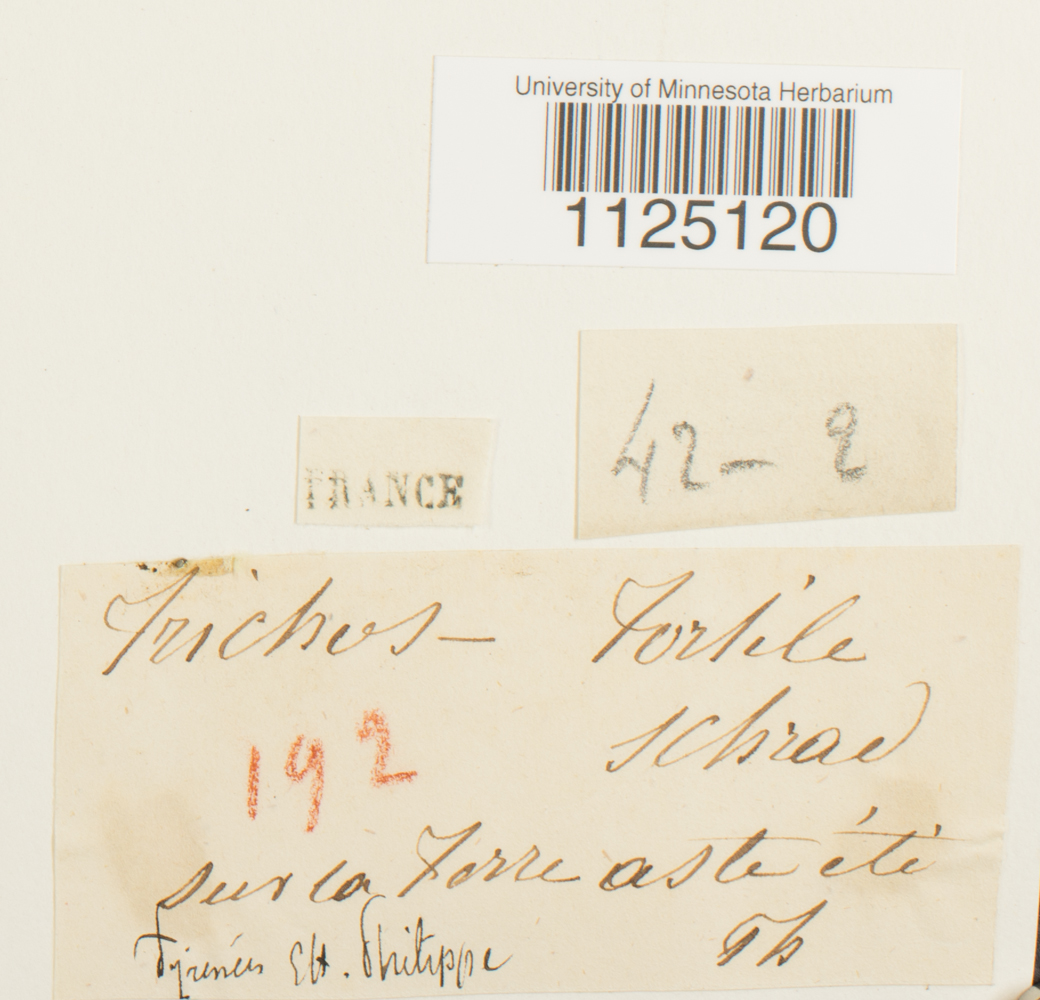 University of Minnesota Herbarium
1125120
42 - 2
FRANCE
Trichos - Tortile
Schrad
192
sur la Terre aste été
Th
Pyrénées Philippe